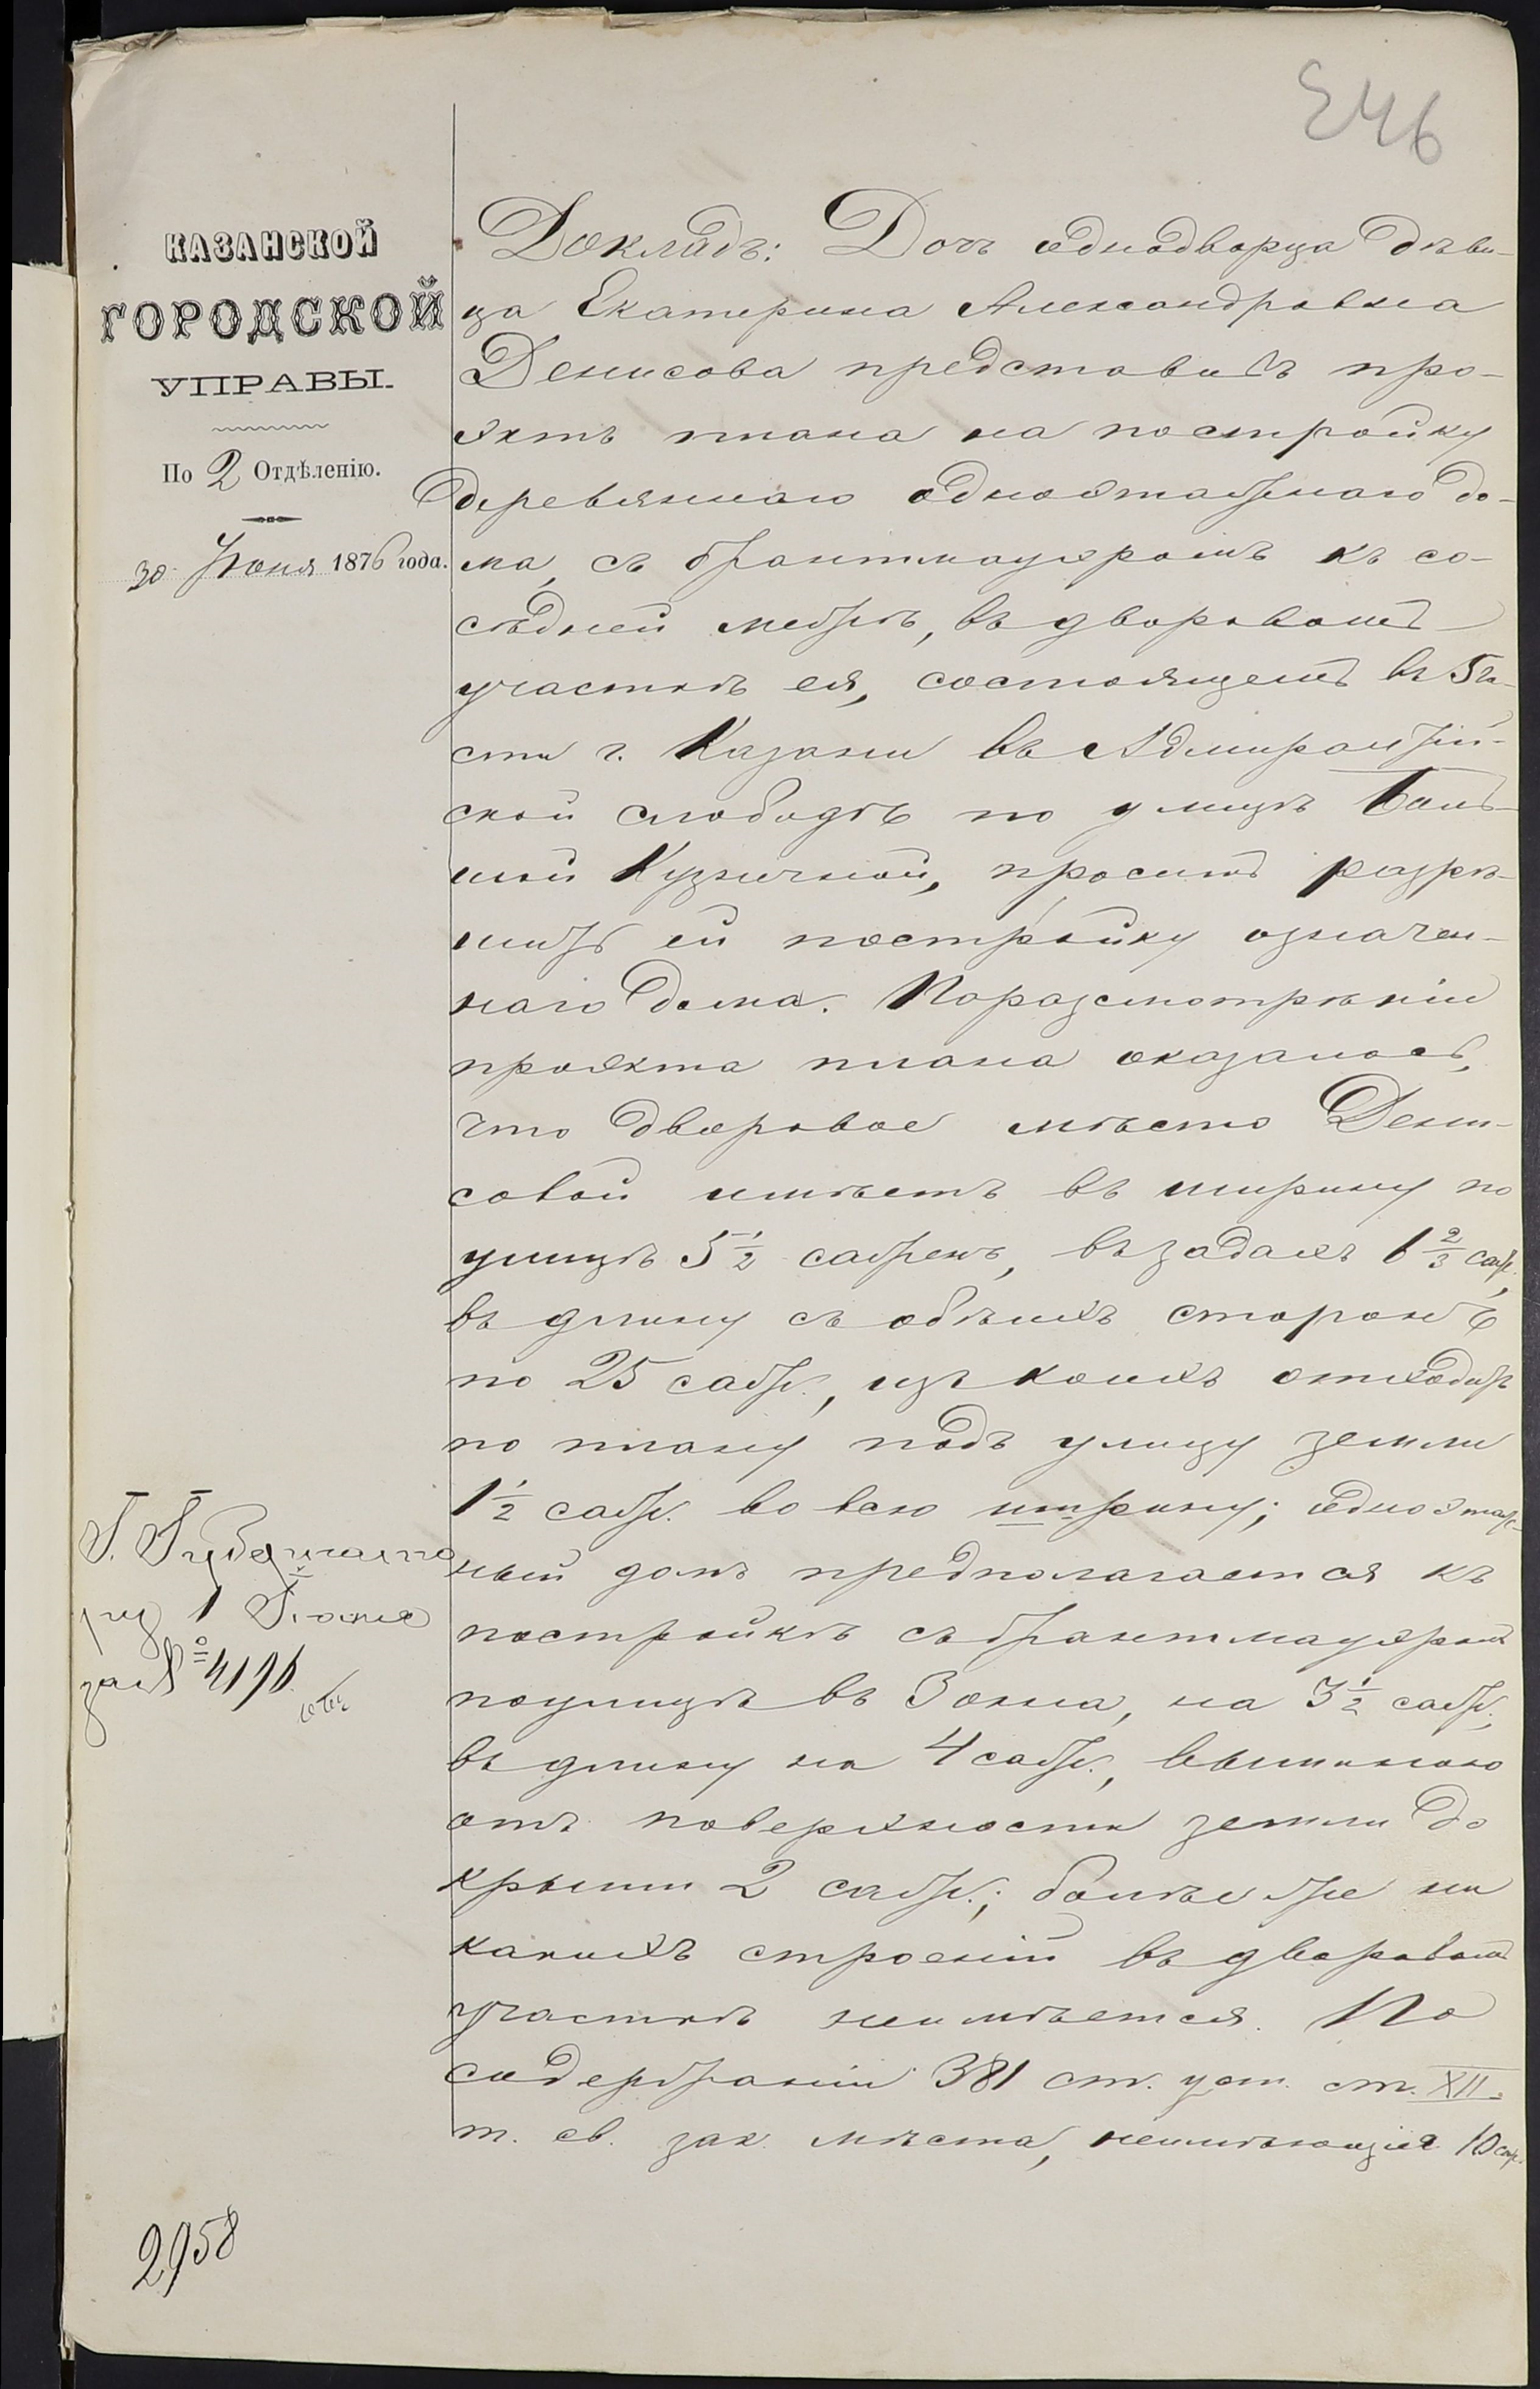 246
КАЗАНСКОЙ
ГОРОДСКОЙ
УПРАВЫ.
По 2 Отдѣленію.
30 Іюня 1876 года.
Докладъ: Дочь однодворца дѣви-
ца Екатерина Александровна
Денисова представивъ про-
эктъ плана на постройку
деревяннаго одноэтажнаго до-
ма, съ брантмауэромъ къ со-
сѣдней межѣ, въ дворовомъ
участкѣ ея, состоящемъ въ 5 ча-
сти г. Казани въ Адмиралтей-
ской слободѣ по улицѣ Боль-
шой Кузнечной, проситъ разрѣ-
шить ей постройку означен-
наго дома. По разсмотрѣніи
проэкта плана оказалось,
что дворовое мѣсто Дени-
совой имѣетъ въ ширину по
улицѣ 5 1/2 саженъ, въ задахъ 6 2/3 саж.,
въ длину съ обѣихъ сторонъ
по 25 саж., изъ коихъ отходитъ
по плану подъ улицу земли
1 1/2 саж. во всю ширину; одноэтаж-
ный домъ предполагается къ
постройкѣ съ брантмауэромъ
по улицѣ въ 3 окна, на 3 1/2 саж.,
въ длину на 4 саж., вышиною
отъ поверхности земли до
крыши 2 саж.; болѣе же ни
какихъ строеній въ дворовомъ
участкѣ неимѣется. По
содержанію 381 ст. уст. ст. XII
т. св. зак. мѣста, неимѣющія 10 саж.
1 Іюля
за № 4196
2958